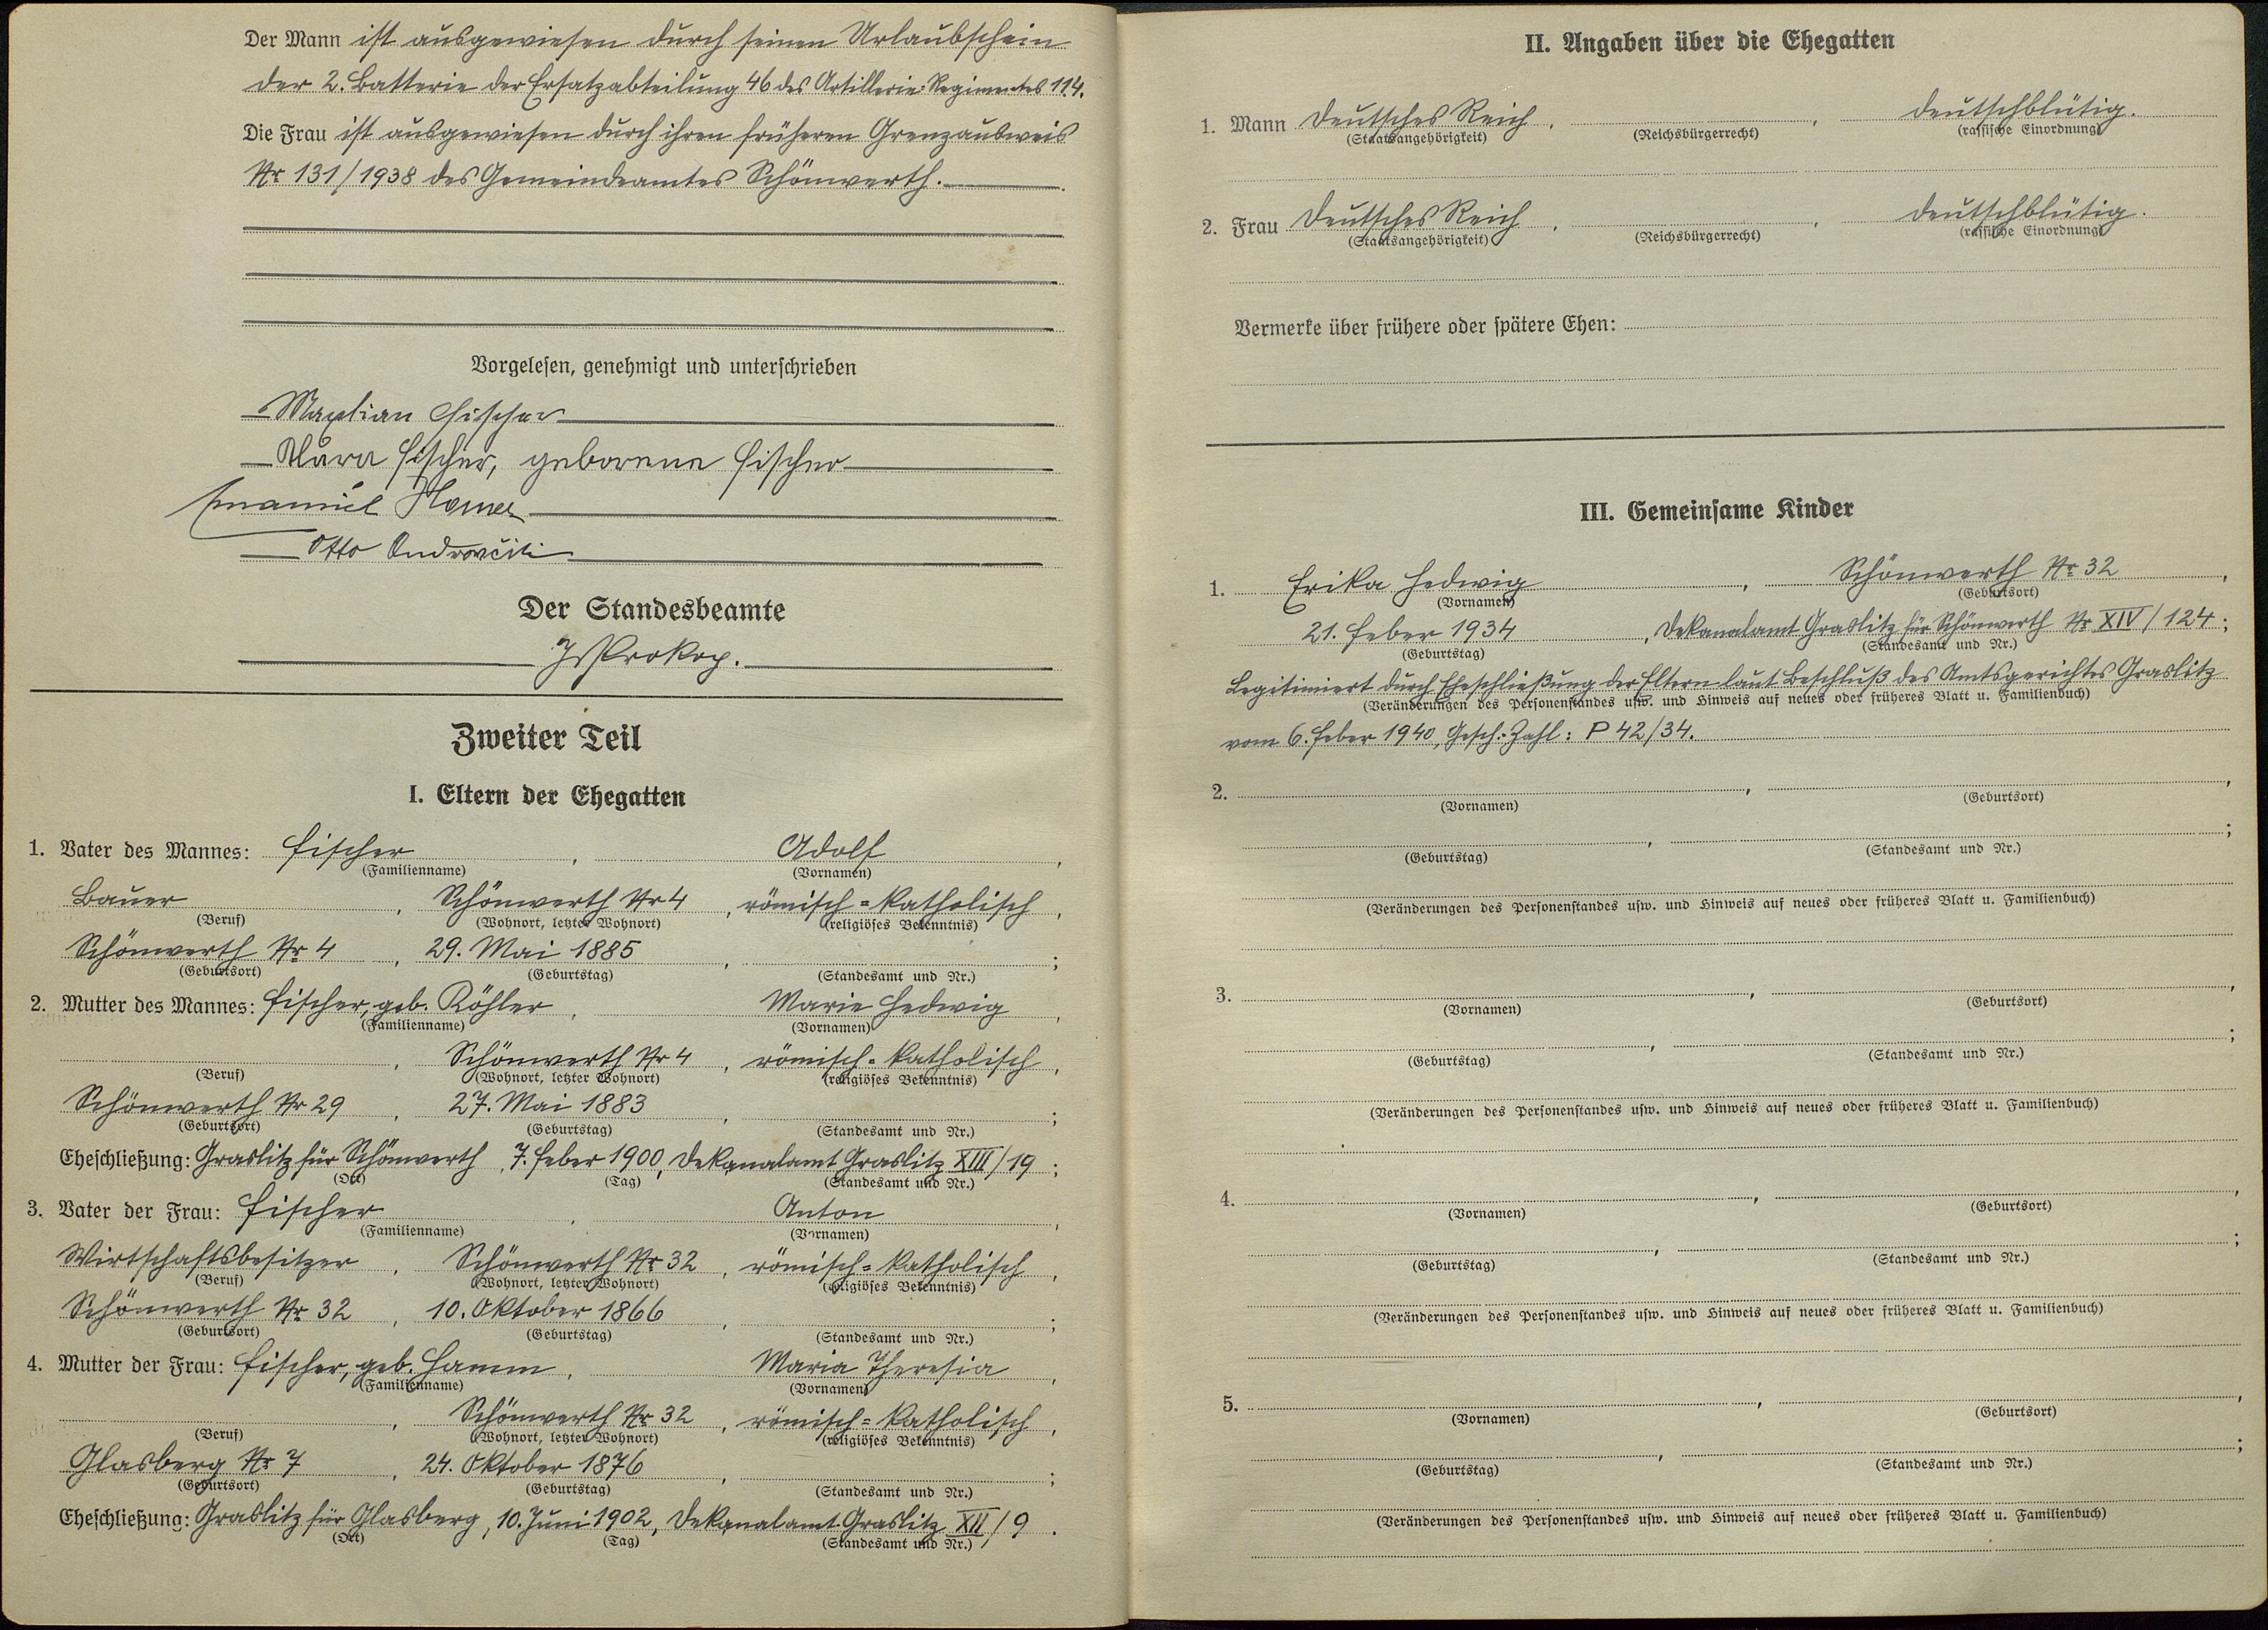 Der Mann ist ausgewiesen durch seinen Urlaubschein
der 2. Batterie der Ersatzabteilung 46 des Artillerie-Regimentes 114.
Die Frau ist ausgewiesen durch ihren früheren Grenzausweis
Nr 131/1938 des Gemeindeamtes Schönwerth.
Vorgelesen, genehmigt und unterschrieben
Fischer
Klara Fischer, geborene Fischer
Emanuel
Otto
Der Standesbeamte
Prokop.
Zweiter Teil
I. Eltern der Ehegatten
1. Vater des Mannes: Fischer, Adolf,
(Familienname) (Vornamen)
Bauer, Schönwerth Nr 4, römisch=katholisch,
(Beruf) (Wohnort, letzter Wohnort) (religiöses Bekenntnis)
Schönwerth Nr 4, 29. Mai 1885, ;
(Geburtsort) (Geburtstag) (Standesamt und Nr.)
2. Mutter des Mannes: Fischer, geb. Köhler, Marie Hedwig,
(Familienname) (Vornamen)
, Schönwerth Nr 4, römisch=katholisch,
(Beruf) (Wohnort, letzter Wohnort) (religiöses Bekenntnis)
Schönwerth Nr 29, 27. Mai 1883, ;
(Geburtsort) (Geburtstag) (Standesamt und Nr.)
Eheschließung: Graslitz für Schönwerth, 7. Feber 1900, Dekanalamt Graslitz XIII/19;
(Ort) (Tag) (Standesamt und Nr.)
3. Vater der Frau: Fischer, Anton,
(Familienname) (Vornamen)
Wirtschaftsbesitzer, Schönwerth Nr 32, römisch=katholisch,
(Beruf) (Wohnort, letzter Wohnort) (religiöses Bekenntnis)
Schönwerth Nr 32, 10. Oktober 1866, ;
(Geburtsort) (Geburtstag) (Standesamt und Nr.)
4. Mutter der Frau: Fischer, geb. Hamm, Maria Theresia,
(Familienname) (Vornamen)
, Schönwerth Nr 32, römisch=katholisch,
(Beruf) (Wohnort, letzter Wohnort) (religiöses Bekenntnis)
Glasberg Nr 7, 24. Oktober 1876, ;
(Geburtsort) (Geburtstag) (Standesamt und Nr.)
Eheschließung: Graslitz für Glasberg, 10. Juni 1902, Dekanalamt Graslitz XII/9.
(Ort) (Tag) (Standesamt und Nr.)
II. Angaben über die Ehegatten
1. Mann Deutsches Reich, , deutschblütig.
(Staatsangehörigkeit) (Reichsbürgerrecht) (rassische Einordnung)
2. Frau Deutsches Reich, , deutschblütig.
(Staatsangehörigkeit) (Reichsbürgerrecht) (rassische Einordnung)
Vermerke über frühere oder spätere Ehen:
III. Gemeinsame Kinder
1. Erika Hedwig, Schönwerth Nr 32,
(Vornamen) (Geburtsort)
21. Feber 1934, Dekanalamt Graslitz für Schönwerth Nr XIV/124;
(Geburtstag) (Standesamt und Nr.)
Legitimiert durch Eheschließung der Eltern laut Beschluß des Amtsgerichtes Graslitz
(Veränderungen des Personenstandes usw. und Hinweis auf neues oder früheres Blatt u. Familienbuch)
vom 6. Feber 1940, Gesch.-Zahl: P 42/34.
2. , ,
(Vornamen) (Geburtsort)
, ;
(Geburtstag) (Standesamt und Nr.)
(Veränderungen des Personenstandes usw. und Hinweis auf neues oder früheres Blatt u. Familienbuch)
3. , ,
(Vornamen) (Geburtsort)
, ;
(Geburtstag) (Standesamt und Nr.)
(Veränderungen des Personenstandes usw. und Hinweis auf neues oder früheres Blatt u. Familienbuch)
4. , ,
(Vornamen) (Geburtsort)
, ;
(Geburtstag) (Standesamt und Nr.)
(Veränderungen des Personenstandes usw. und Hinweis auf neues oder früheres Blatt u. Familienbuch)
5. , ,
(Vornamen) (Geburtsort)
, ;
(Geburtstag) (Standesamt und Nr.)
(Veränderungen des Personenstandes usw. und Hinweis auf neues oder früheres Blatt u. Familienbuch)